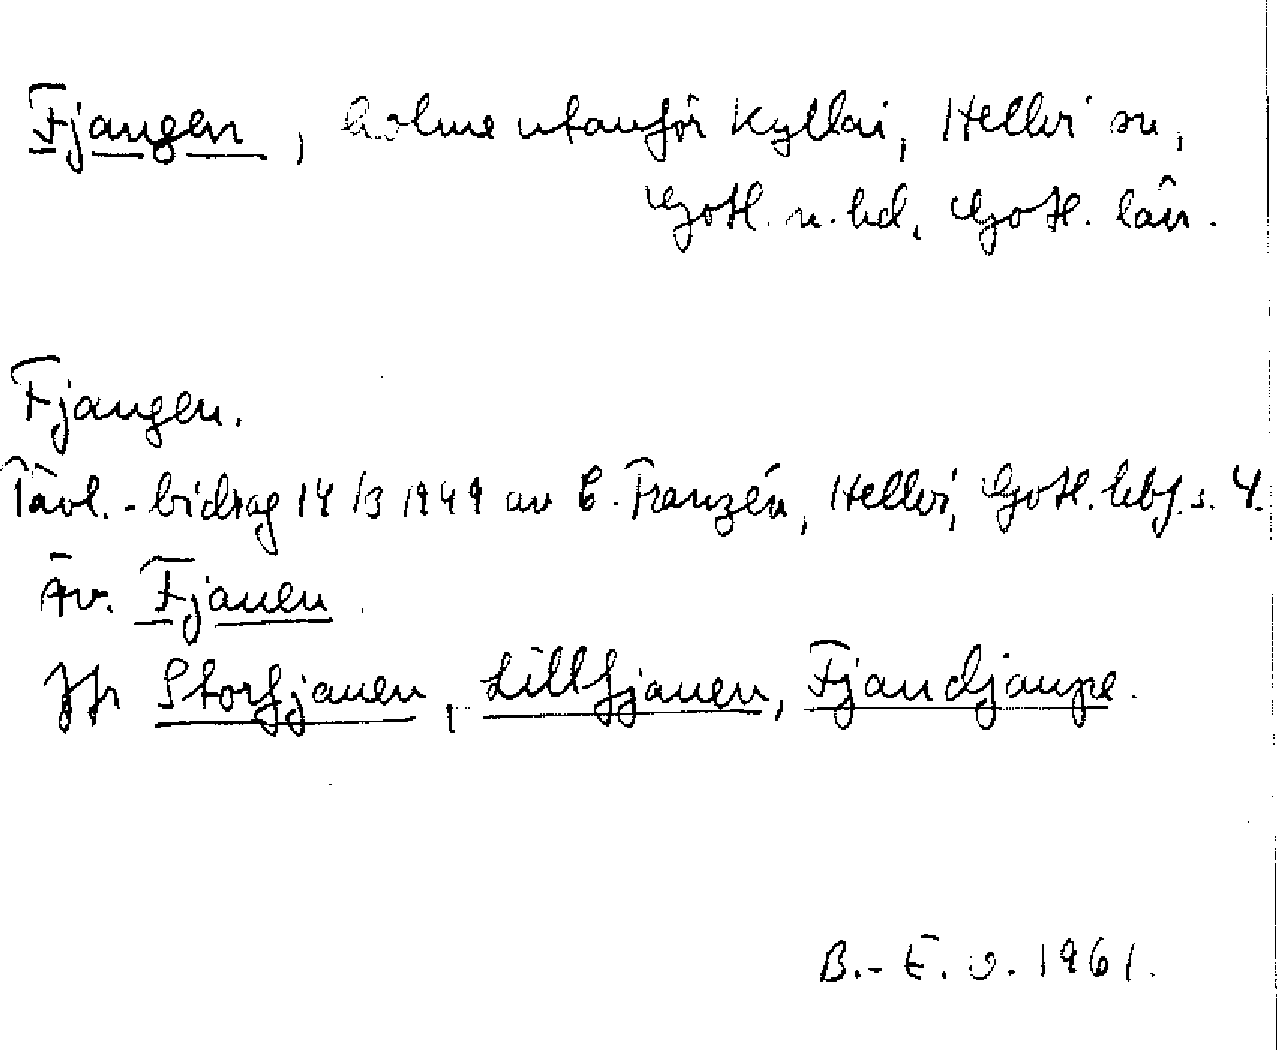 Fjangen, holme utanför Kyllai, Hellvi sn,
Gotl. n. hd, Gotl. län.
Fjangen.
Tävl.-bidrag 14/3 1949 av B. Franzén, Hellvi, Gotl. hbf. s. 4.
Äv. Fjanen.
Jfr Storfjanen, Lillfjanen, Fjandjaupe.
B.-E. O. 1961.